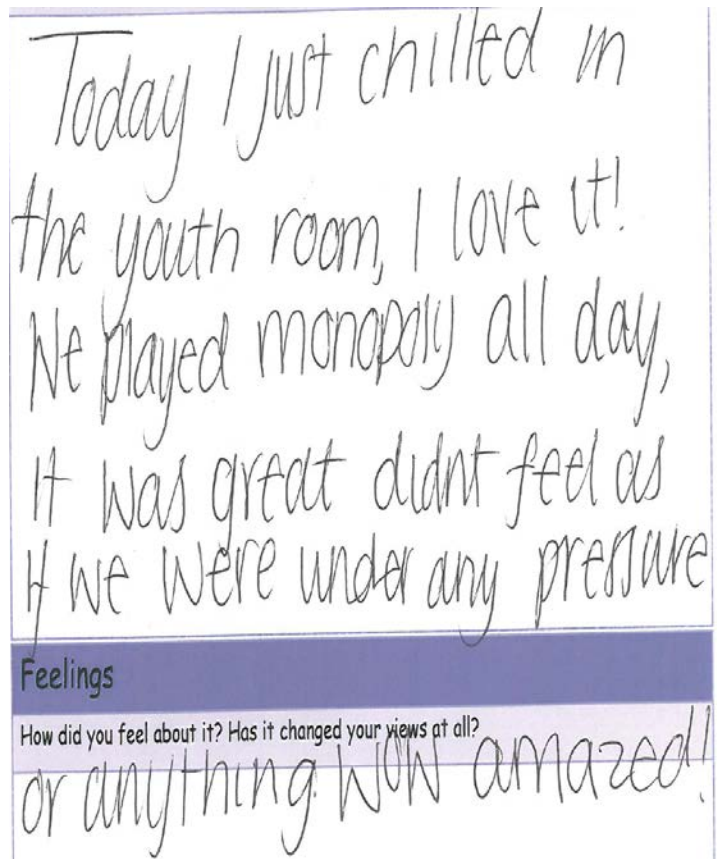 Today I just chilled in
the youth room, I love it!
We played monopoly all day,
It was great didnt feel as
if we were under any pressure
Feelings
How did you feel about it? Has it changed your views at all?
or anything. Wow amazed!